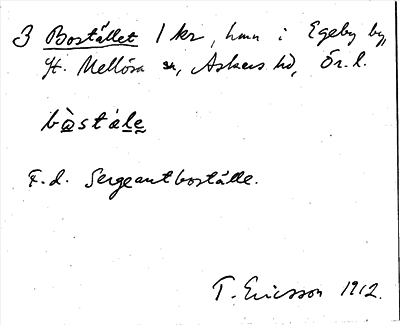 3 Bostället 1 kr, hmn i Egeby by,
St. Mellösa sn, Askers hd, Ör. l.
bo̊stále
F. d. Sergeantboställe.
T. Ericsson 1912.